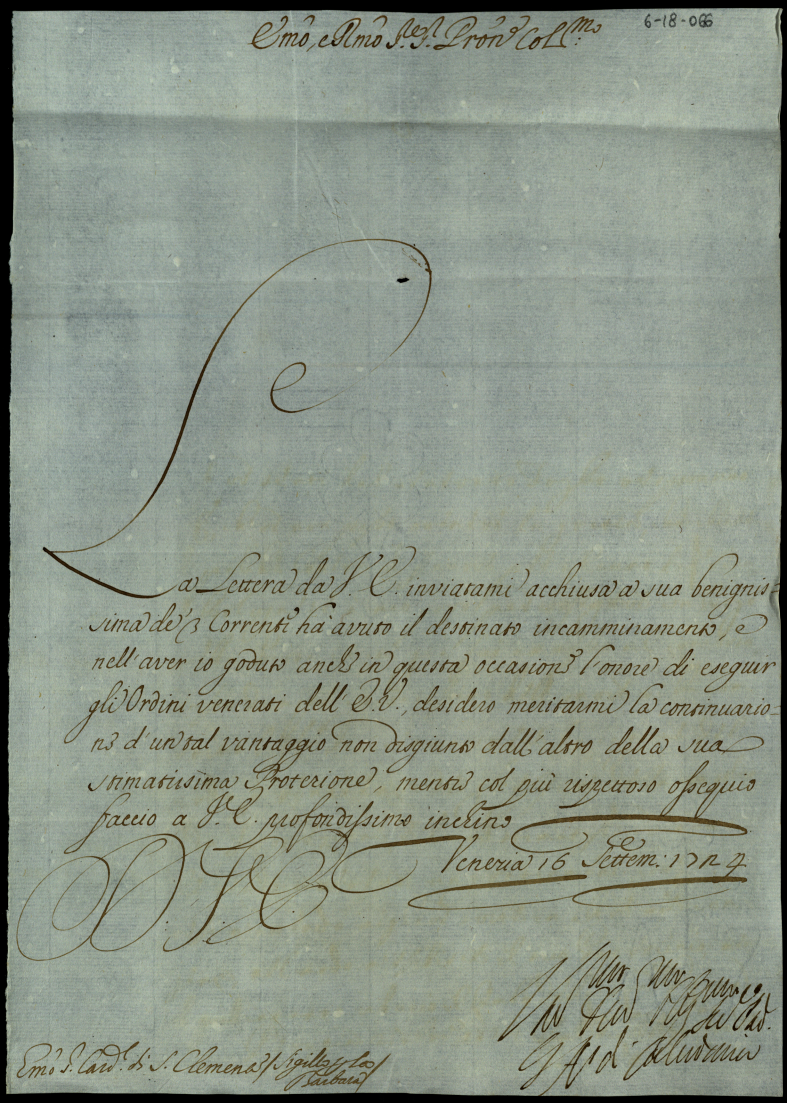 6-18-066
Emo, e Rmo Sre Sr Pron Collmo
La Lettera da V. E. inviatami acchiusa a sua benignis=
sima de' 3 Correnti ha' avuto il destinato incamminamento, e
nell'aver io goduto anche in questa occasione l'onore di eseguir
gli Ordini venerati dell' E.V., desidero meritarmi la continuazio=
ne d'un tal vantaggio non disgiunto dall'altro della sua
stimatissima Protezione, mentre col più rispettoso ossequio
faccio a V. E. profondissimo inchino
Venezia 16 Settem: 1724
D. V. E.
Emo Sr Card. di S. Clemente